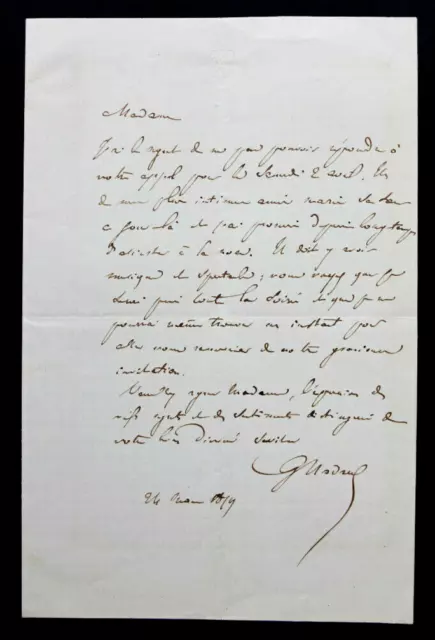 Madame
J'ai le regret de ne pas pouvoir répondre à
votre appel pour le Samedi 2 avril. Un
de mes plus intimes amis marie sa
ce jour là et j'ai promis depuis longtemps
d'assister à la noce. Il doit y avoir
musique et spectacle; vous voyez que je
serai pris toute la soirée et que je ne
pourrai même trouver un instant pour
aller vous remercier de votre gracieuse
invitation.
Veuillez agréer Madame, l'expression des
vifs regrets et des sentiments distingués de
votre très dévoué Serviteur
24 mars 1859